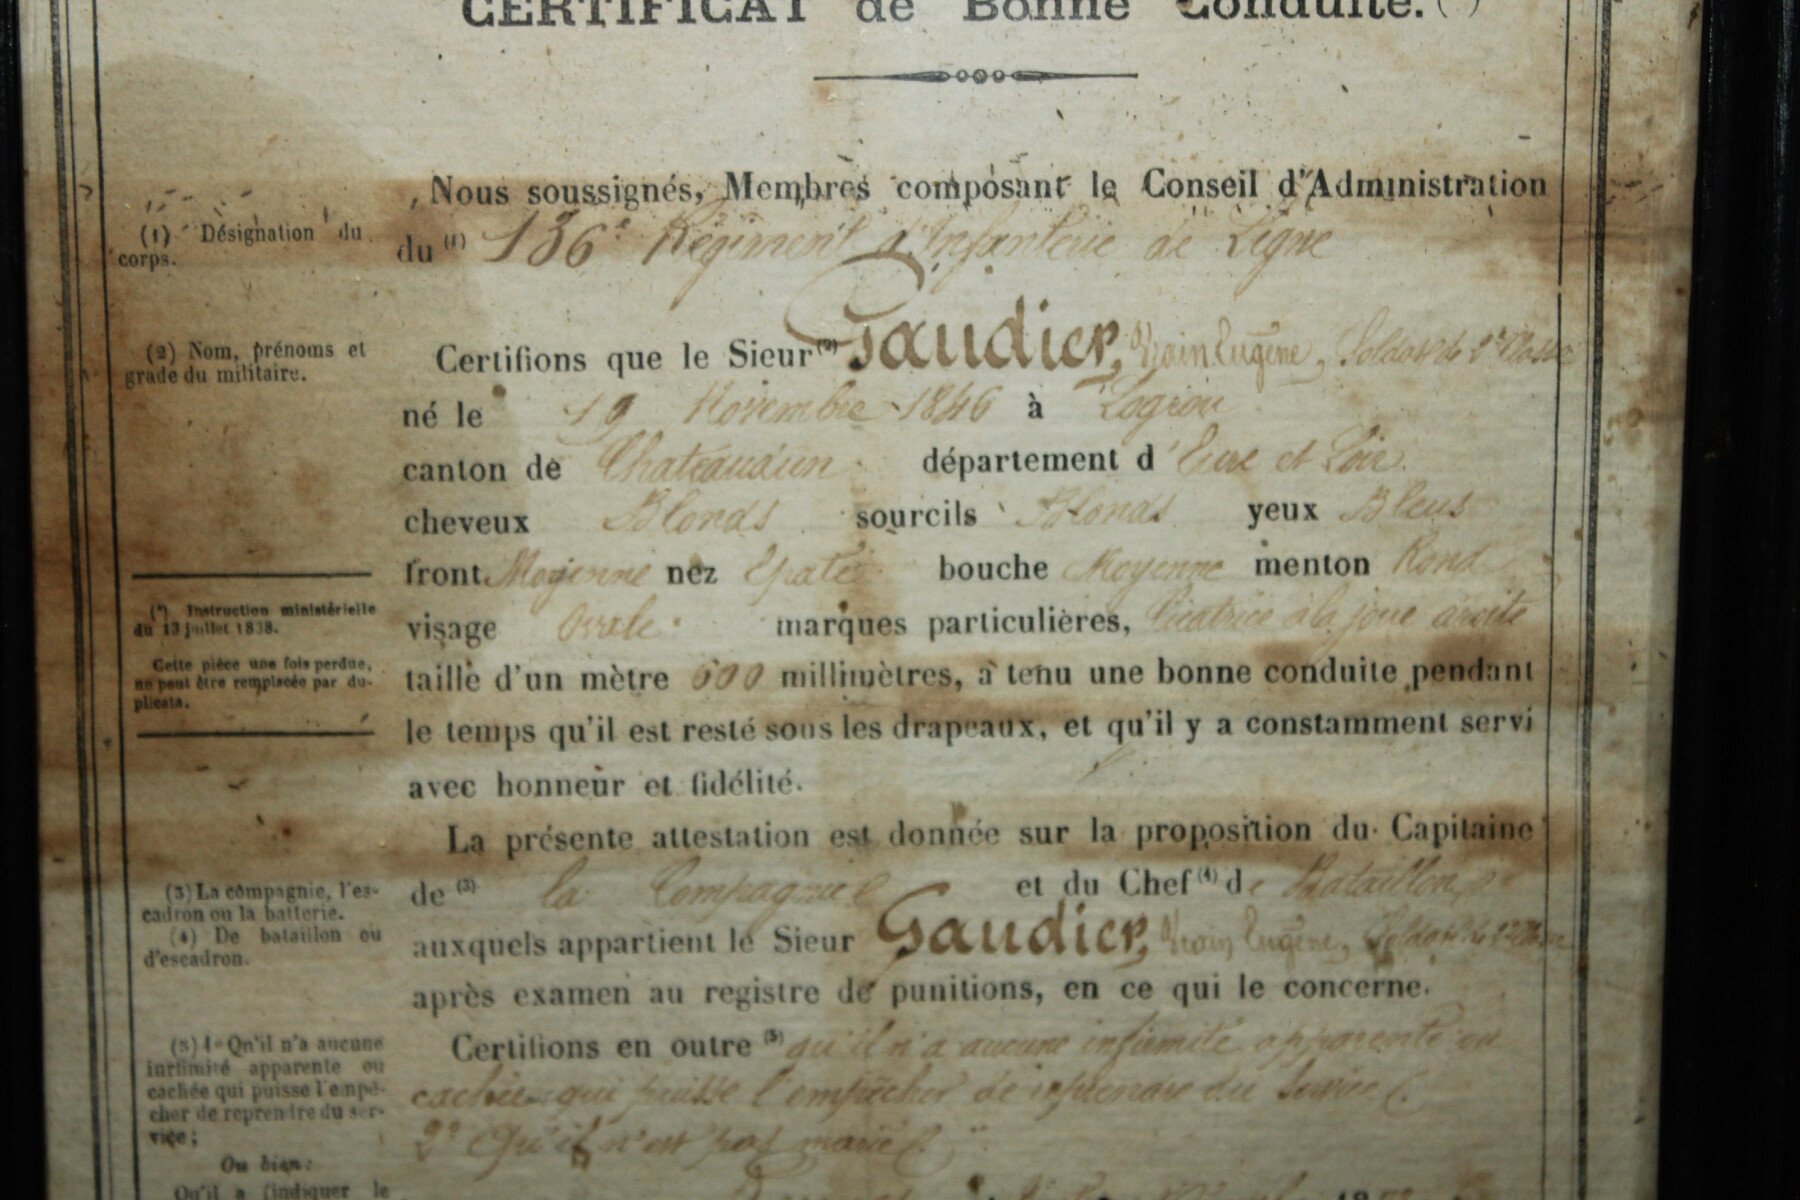 CERTIFICAT de Bonne Conduite. (*)
Nous soussignés, Membres composant le Conseil d'Administration
(1) Désignation du
corps.
du (1) 136e Régiment d'Infanterie de Ligne
(2) Nom, prénoms et
grade du militaire.
Certifions que le Sieur (2) Gaudier, Vrain Eugène, Soldat de 2e Classe
né le 19 Novembre 1846 à Logron
canton de Chateaudun département d'Eure et Loir
cheveux Blonds sourcils Blonds yeux Bleus
front Moyenne nez Epaté bouche Moyenne menton Rond
(*) Instruction ministérielle
du 13 juillet 1838.
visage Ovale marques particulières, Cicatrice à la joue droite
Cette pièce une fois perdue,
ne peut être remplacée par du-
plicata.
taille d'un mètre 600 millimètres, a tenu une bonne conduite pendant
le temps qu'il est resté sous les drapeaux, et qu'il y a constamment servi
avec honneur et fidélité.
La présente attestation est donnée sur la proposition du Capitaine
(3) La compagnie, l'es-
cadron ou la batterie.
(4) De bataillon ou
d'escadron.
de (3) la Compagnie et du Chef (4) de Bataillon
auxquels appartient le Sieur Gaudier, Vrain Eugène, Soldat de 2e Classe
après examen au registre de punitions, en ce qui le concerne.
(5) 1° Qu'il n'a aucune
infimité apparente ou
cachée qui puisse l'empê-
cher de reprendre du ser-
vice;
Ou bien:
Qu'il a (indiquer le
Certifions en outre (5) qu'il n'a aucune infirmité apparente ou
cachée qui puisse l'empêcher de reprendre du Service
2° Qu'il n'est pas marié